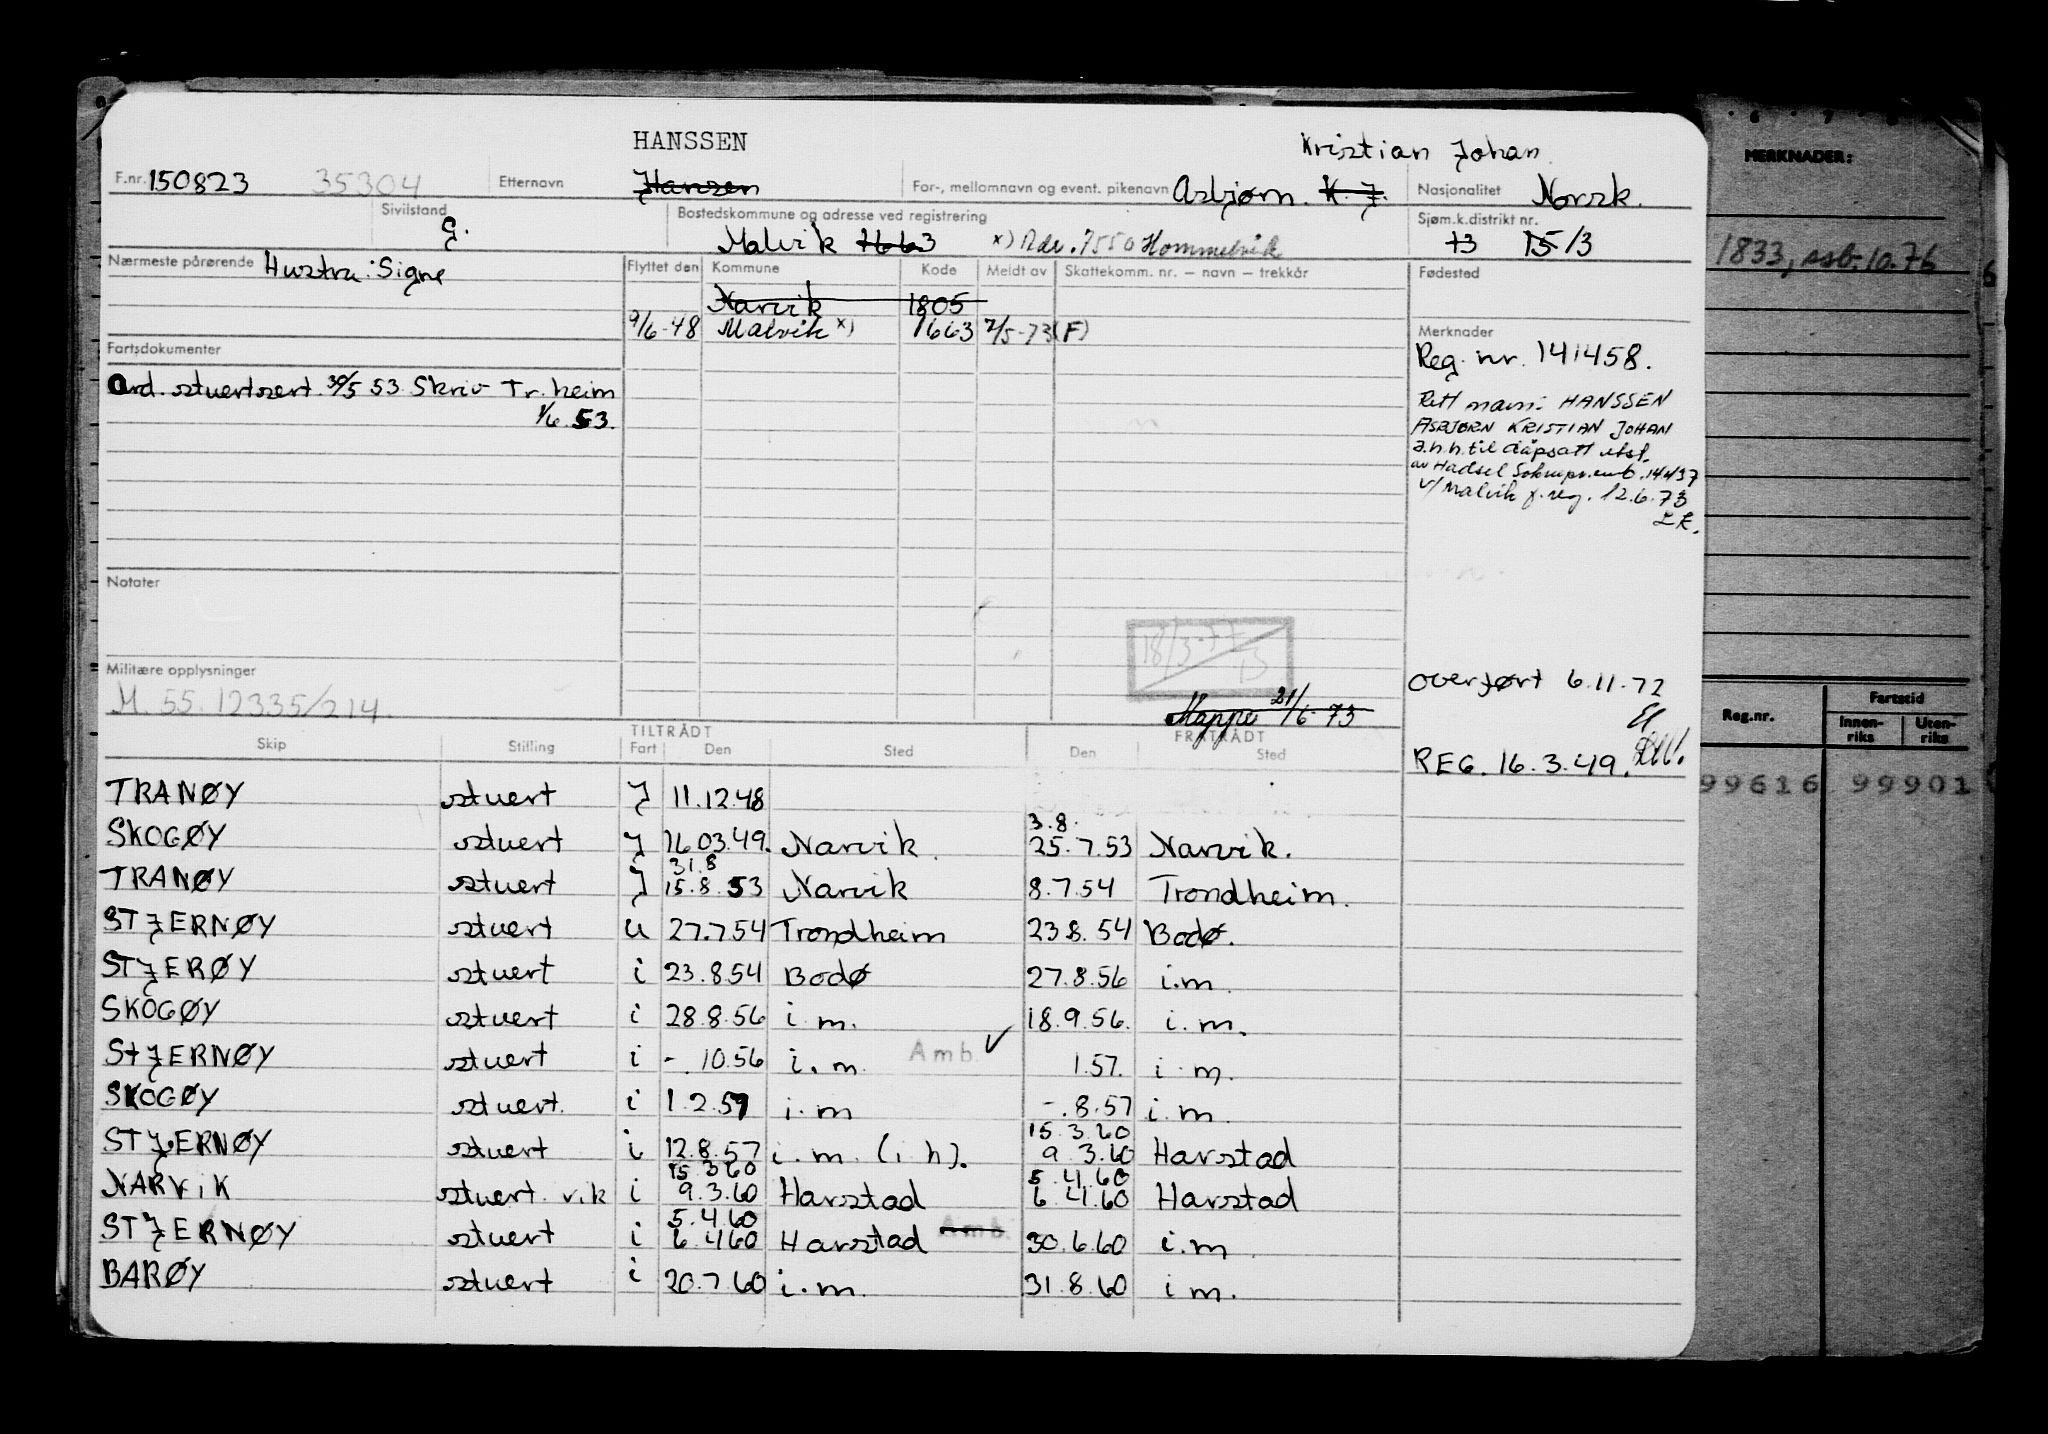 HANSSEN
Kristian Johan
F.nr. 150823 35304 Etternavn Hansen For-, mellomnavn og event. pikenavn Asbjørn K. J. Nasjonalitet Norsk.
Sivilstand G. Bostedskommune og adresse ved registrering Malvik 1663 x) Adr. 7550 Hommelvik Sjøm.k.distrikt nr. 13 15/3
Nærmeste pårørende Hustru: Signe Flyttet den Kommune Kode Meldt av Skattekomm. nr. – navn – trekkår Fødested
Narvik 1805
9/6-48 Malvik x) 1663 2/5-73 (F) Merknader
Fartsdokumenter Reg. nr. 141458.
Ord. stuertsert. 30/5 53. Skriv Tr.heim
1/6 53.
Rett navn: HANSSEN
ASBJØRN KRISTIAN JOHAN
a.h.h. til dåpsatt utst.
av Hadsel Sokneprestemb. 14437
v/ Malvik f.reg. 12.6.73
Notater
18/3-77
Militære opplysninger
M. 55. 12335/214.
overført 6.11.72
Mappe 21/6-73
REG. 16.3.49.
TILTRÅDT FRATRÅDT
Skip Stilling Fart Den Sted Den Sted
TRANØY stuert J 11.12.48
3.8.
SKOGØY stuert J 16.03.49. Narvik. 25.7.53 Narvik.
31.8
TRANØY stuert J 15.8.53 Narvik 8.7.54 Trondheim.
STJERNØY stuert U 27.7.54 Trondheim 23.8.54 Bodø.
STJERØY stuert i 23.8.54 Bodø 27.8.56 i.m.
SKOGØY stuert i 28.8.56 i.m. 18.9.56. i.m.
STJERNØY stuert i -.10.56 i.m. Amb. ✓ 1.57. i.m.
SKOGØY stuert. i 1.2.57 i.m -.8.57 i.m.
15.3.60
STJERNØY stuert i 12.8.57 i.m. (i h). 9.3.60 Harstad
15.3.60 5.4.60
NARVIK stuert vik i 9.3.60 Harstad 6.4.60 Harstad
5.4.60
STJERNØY stuert i 6.4.60 Harstad Amb. 30.6.60 i.m.
BARØY stuert i 20.7.60 i.m. 31.8.60 i.m.
6 7
MERKNADER:
1833, ssb. 10.76
Reg.nr. Fartstid
Innen-riks Uten-riks
99616 99901